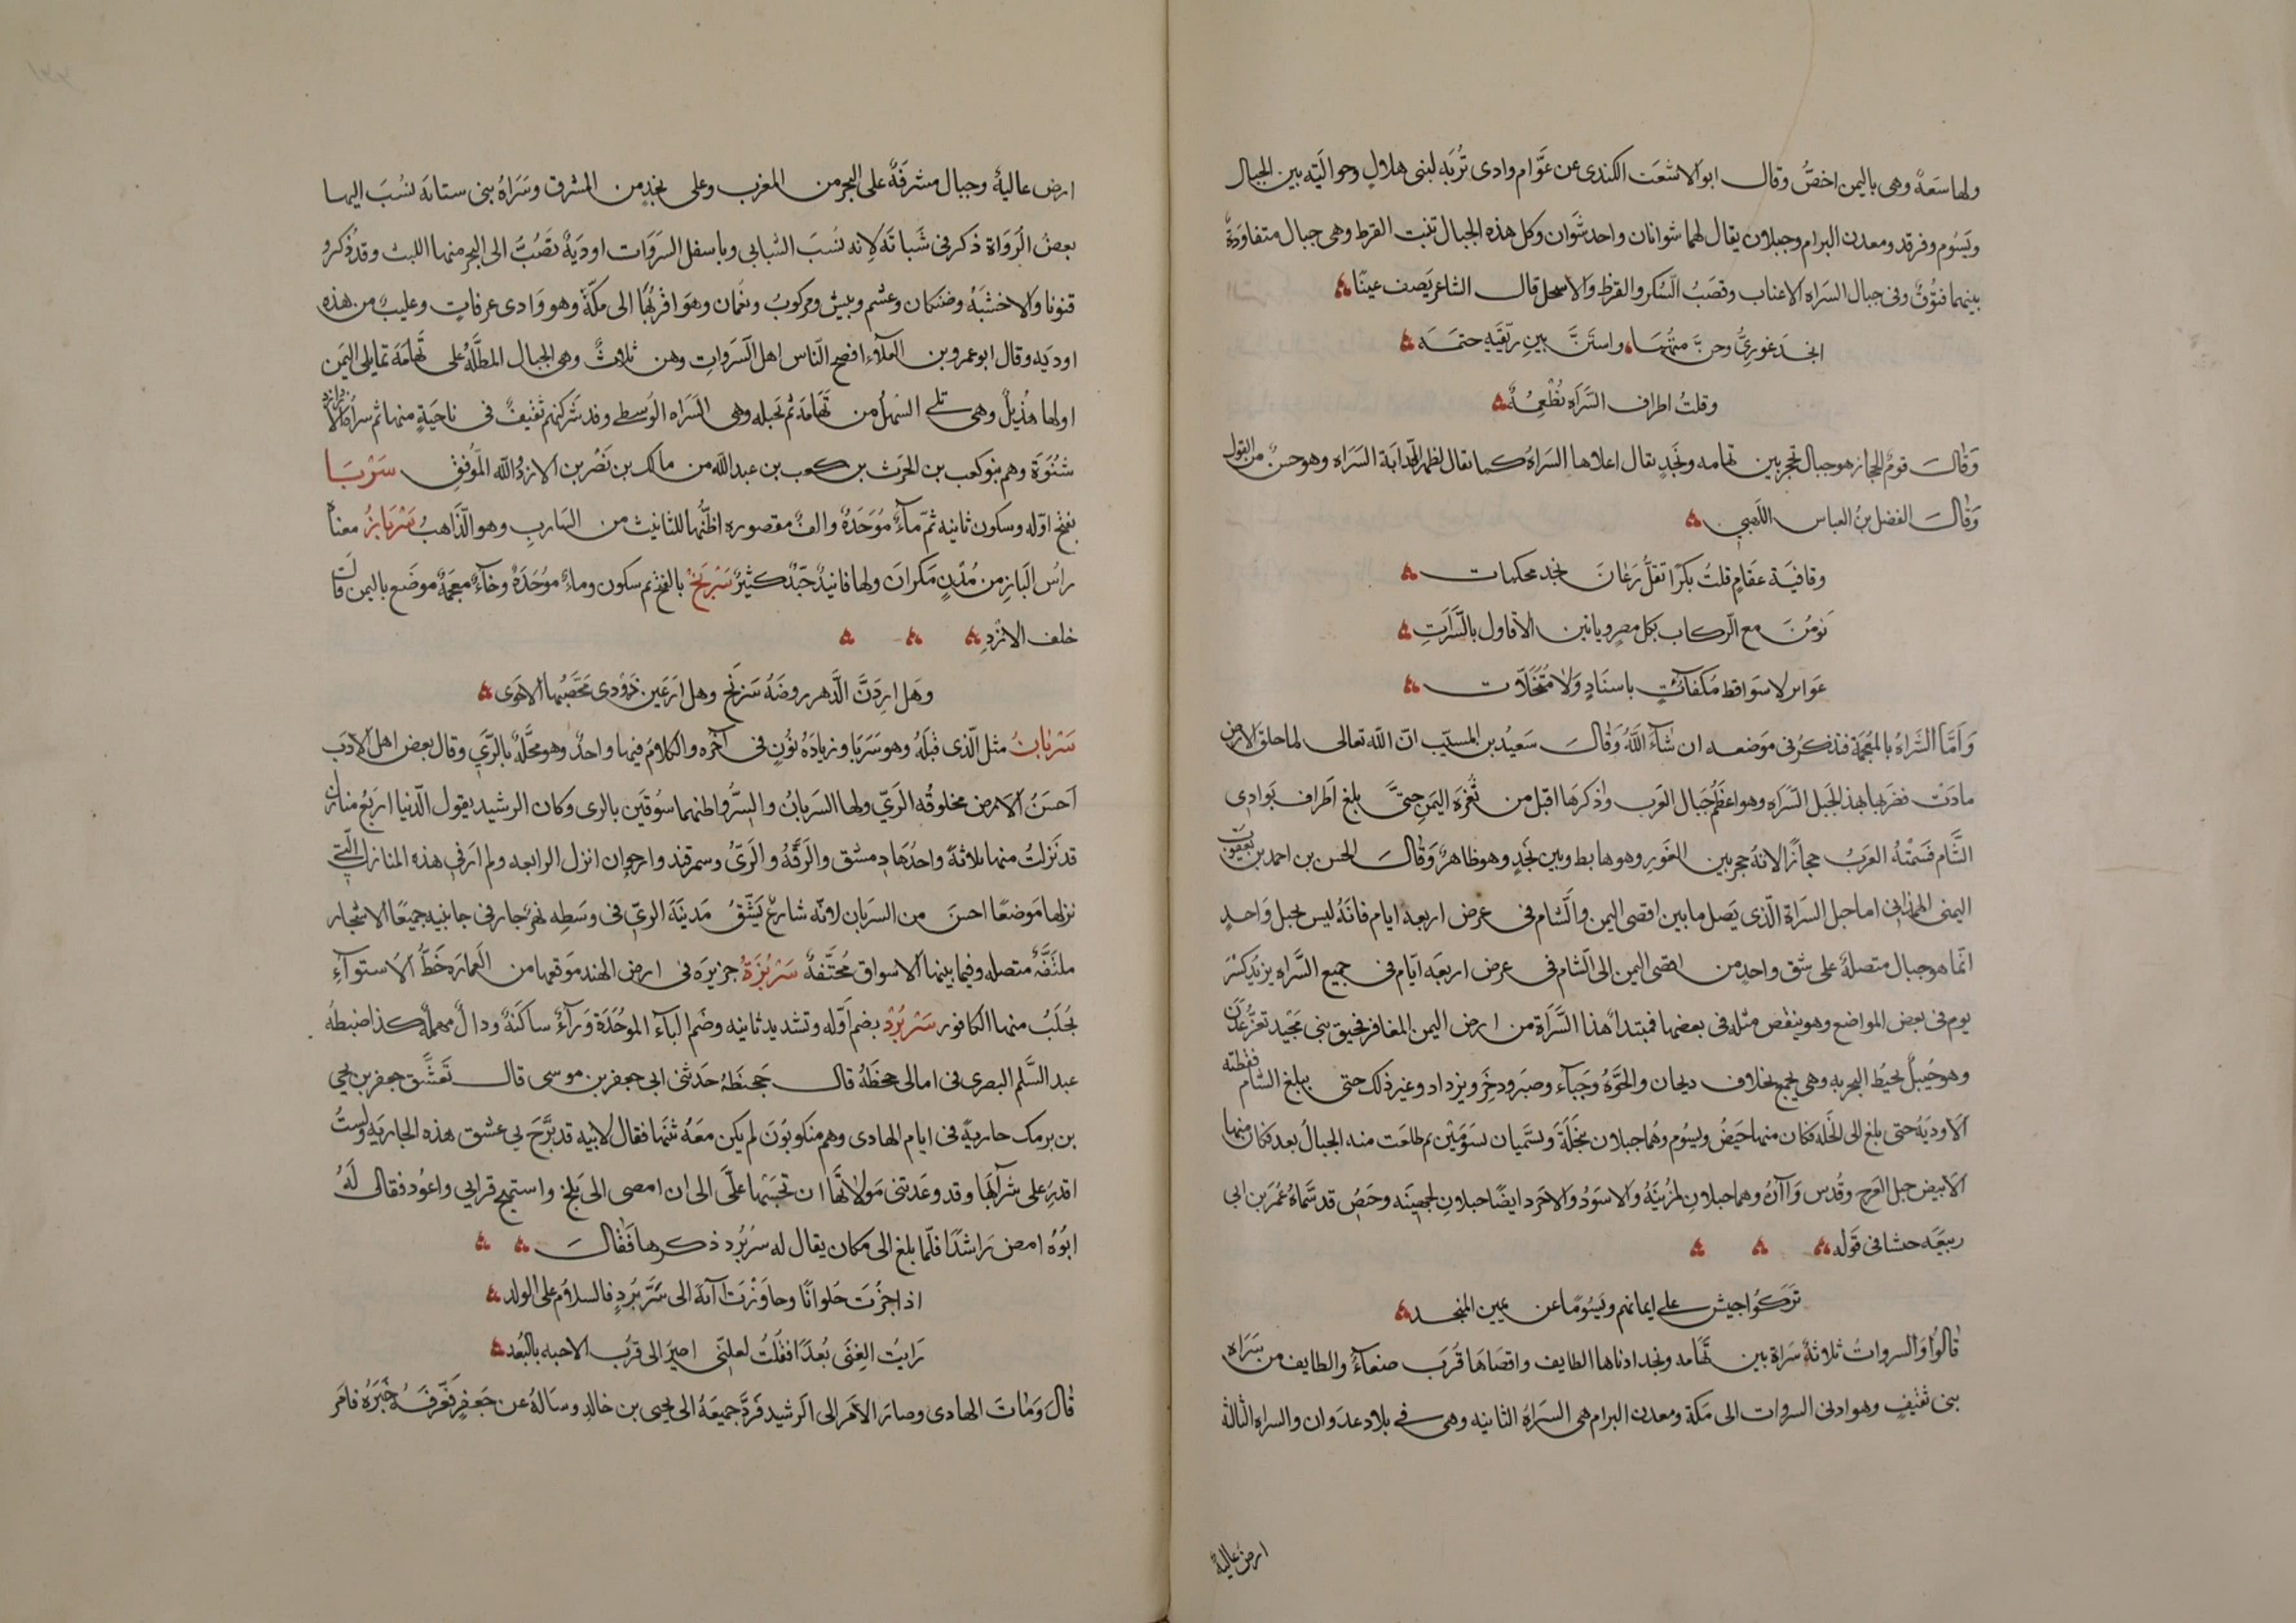 ولها سَعة وهى باليمن اخصّ وقال ابو الاشعَث الكندى عن عَوّام وادى تُربَه لبنى هلال وحواليَته بين الجبال
ويَسُوم وفرقد ومعدن البرام وجبلان يقال لهما شوانان واحد شَوان وكل هذه الجبال تنبت القرط وهى جبال متفاودَة
بينهما فتوُق وفى جبال السَراه الاعناب وقصَبُ السُكر والقرظ والاسحل قال الشاعر يَصف عينًا
انجد غورىُّ وحنَّ متهمه واستَنَّ بين ريّقَيه حتمه
وقلتُ اطراف السَّرَاه نُطْعِمُهُ
وَقالَ قومٌ الحجاز هو جبال تحجر بين تهامه ونجَدٍ يقال اعلاها السَراهُ كما يقال لظهر الدّابَة السَرَاه وهو حسن من القول
وَقالَ الفضل بنُ العباس اللَهبى
وقافيَة عقامٍ قلتُ بكرًا تقلُّ رَعَانَ نجد محكمات
نَومُنَ مع الركاب بكل مصر وياتين الاقاول بالسَّرَاتِ
عَواير لا سَواقط مُكفآتٍ باسنَادٍ وَلا مُتنخّلات
وَاَمّا الشَراهُ بالمُعجَمة فنذكرُ فى مَوضعه ان شآءَ اللَّهُ وَقالَ سَعيدُ بن المسيّب انّ الله تعالى لما خلق الارض
مادَتْ فضرَبها بهذا الجَبل السَرَاه وهو اعظَمُ جبَال العَرب واذكرَهَا اقبل من ثُغرَة اليَمن حتىَّ بلغ اَطراف بَوادِى
الشَّام فسَمّتهُ العَربُ حجازًا لانهُ حجر بين الغَورِ وهو هابط وبين نَجدٍ وهو ظاهرٌ وَقالَ الحسن بن احمد بن يَعقوب
اليمنى الهمذانى اما جبل السَراة الّذى يَصل ما بين اقصى اليمن والشام فى عرض اربعه ايام فانَهُ ليس بجبل وَاحدٍ
انّما هو جبال متصلةٌ على شق واحدٍ من اقصى اليمن الى الشام فى عرض اربعَه ايّام فى جميع السَّراه يزيدُ كسْرَ
يوم فى بعض المواضع وهو ينقُص مثله فى بعضها فمبتدأ هذا السَّرَاة من ارض اليمن المغافر فحيق بنى مَجيد تعَزُّ عَدَن
وهو جُبيلٌ يحيُط البحر به وهى يجمع مخلاف ديحان والجَوَّهُ وَجَبآء وصبَرَ ودخِرَ ويزداد وغير ذلك حتى يبلغ الشام فقطته
الاَوديَهُ حتى بلغ الى النَخله فكان منها حَيضُ ويسُوم وهُما جبلان بنخلَةَ ويسَّميان يسَوُمَيْن ثم طلعَت منه الجبالُ بعد فكان منها
الاَبيض جبل العَرج وقُدس وَآرَة وهما جبلان لمُزينَةُ والاسوَدُ والاجَرد ايضًا جبلان لجهينَه وحَيضُ قد سَّماهُ عُمَر بن ابى
ربيعَه حشا فى قَوله
تَرَكُوا جيش على ايمانهم ويَسُومًا عن يمين المنجد
قالوُا وَالسرواتُ ثلاثةٌ سَراة بين تهَامه ونجد ادناها الطايف واقصَاهَا قُربَ صنعآءَ والطايف من سَراه
بنى ثقيفٍ وهو ادنى السروات الى مكة ومعدن البرام هى السَرَاهُ الثانيه وهى فى بلاد عدوان والسراه الثالثة
ارض عالية
ارض عاليةٌ وجبال مشرفَةٌ على البحر من المغرب وعلى نجدٍ من المشرق وَسَرَاهُ بنى ستانَه نسُبَ اليها
بعضُ الرَواة ذكر فى شَبَاتَه لانه نسَبَ الشبابى وباسفل السَرَوَات اوديَةٌ تصَبُّ الى البحر منها الليث وقد ذكرو
قنونا وَالاخشَبَهُ وضنكان وعشم وبيش ومركوبُ ونعمان وهوَ اقربُهُا الى مكّة وهو وَادى عرفاتٍ وعليبٌ من هذه
اوديَه وقال ابو عمرو بن العَلآء افصح النّاس اهل السَرَواتِ وهن ثلاثٌ وهى الجبال المطلَّهُ على تَّهامَةَ تمايلى اليَمن
اولها هُذَيلٌ وهى تلى السَهلَ من تهَامَه ثم نجبله وهى السَرَاه الوُسطى وقد شركتهم ثقيفٌ فى ناحيَةٍ منها ثم سراةُ الازد
شنُوَة وهم بنو كعب بن الحَرث بن كعب بن عبد الله من مالك بن نَصْر بن الازد والله الموُفق سَرْبَا
بفتح اوّله وسكون ثانيه ثمّ بآءٌ مُوَحَدَةٌ والفٌ مقصوره اظنُّها للثانيث من السَاربِ وهو الذَّاهبُ سَرْبَازُ معناه
راسُ البَازِ من مُدُن مَكرانَ ولها فانيدٌ جَيّدٌ كثيرٌ سَرْبَخْ بالفتح ثم سكون وباءٌ موُحَدَةٌ وخَآءٌ معجمَةٌ موضَع باليمن قالت
خلف الازدِ
وهَل ارِدَنَّ الدَّهر روضَةُ سَربَخ وهل ارعَين ذَوْدى مُحَصَبُها الاحوَى
سَرْبَانُ مثل الّذى قَبلَهُ وهو سَرَبا وزيادَهُ نُونٍ فى آخرُه والكلامُ فيها واحدٌ وهو محلَّةٌ بالرَّىِ وقال بعض اهل الادَب
اَحسَنُ الاَرض مخلوقُه الرَىّ ولها السَربانُ والسِرُّ واظنهما سُوقَين بالرى وكان الرشيد يقول الدّنيا اربَعُ منازل
قد نَزلتُ منها بلاثةً واحدُها دمشق والرَقَّهُ والرَىُّ وسمرقند وارجوان انزل الرابعه ولم ارَ فى هذه المنازل التَّى
نزلها مَوضعًا احسَنَ من السَربان لانّه شارعٌ يَشّقُ مَدينَة الرىّ فى وسَطه نهَرٌ جار فى جانبيه جميعًا الاشجار
ملتفَّةٌ متصله وفيما بينها الاسواق مُحتَّفةٌ سَرْبُزَةُ جزيرَه فى ارض الهند مَوقعها من العمارَه خَطُّ الاَستوآءِ
يُجلَبُ منها الكافور سَرْبُرْد بضم اَوّله وتشديد ثانيه وضم البآء الموُحَّدَة وَرآءٌ ساكنَةٌ ودالٌ مهملةٌ كذا ضبطهُ
عبد السَّلم البصرى فى امالى جحظَهُ قال جَحظَهُ حَدثنى ابى جعفر بن موسى قال تَعشَّق جعفر بن يحيى
بن برمك جاريةً فى ايام الهادى وهم منَكوبُونَ لم يكن معَهُ ثمَنَها فقال لابيه قد بَّرحَ بى عشق هذه الجاريَه ولَستُ
اقدِرُ على شرآئِهَا وقد وعَدتنى مَولاتُهَا ان تحبَسَها علَىَّ الى ان امضى الى بَلخ واستمح قرابى واعوُد فقال لهُ
ابوُهُ امض رَاشدًا فلمّا بلغ الى مكان يقال له سرُبُرد ذكرها فَقالَ
اذا جزُتَ حُلوانًا وجاوَزْتَ آبَةَ الى سَّرَ بُرَدٍ فالسلاَم على الولد
رَايتُ الغِنَى بُعدًا فقُلتُ لعلّنِى اصيرُ الى قربُ الاحبه بالبُعد
قالَ وَمَاتَ الهادى وصارَ الاَمر الى الرشيد فَردَّ جميعَهُ الى يحيى بن خالدِ وسَالهُ عن جَعفرٍ فَعَّرفَهُ خَبَرَهُ فامَر